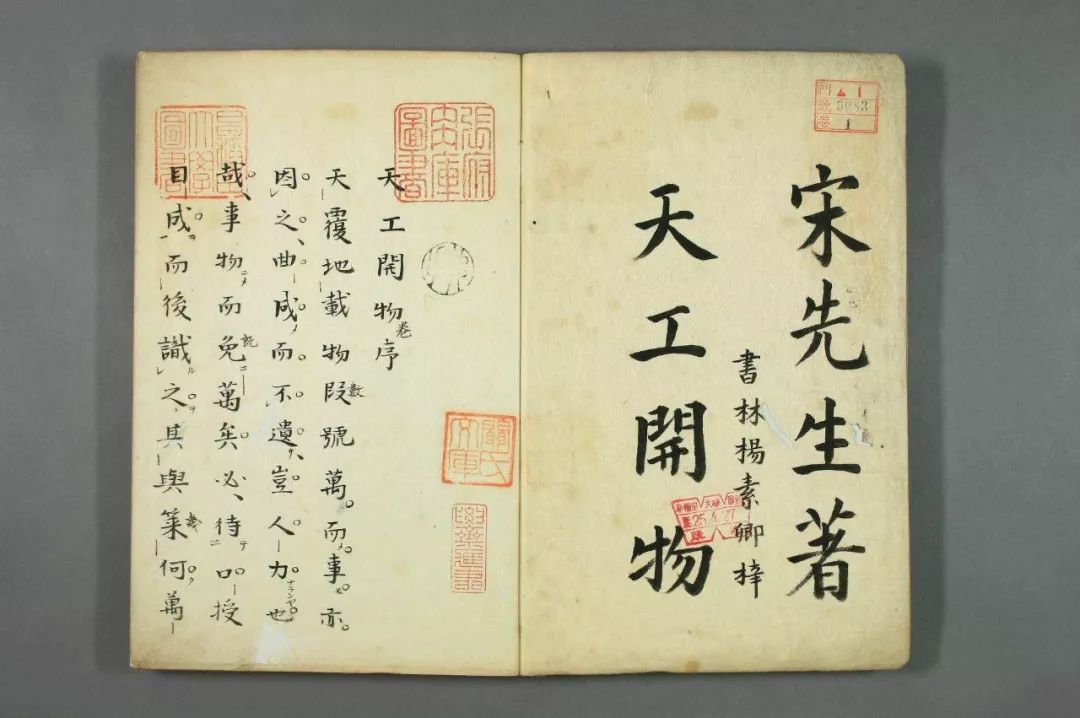 宋先生著
書林楊素卿梓
天工開物
天工開物卷序
天覆地載物段數號萬而事亦
因之曲成而不遺豈人力也
哉事物而免既萬矣必待口授
目成而後識之其與築幾何萬
門號卷
5083
1
圖書
文庫